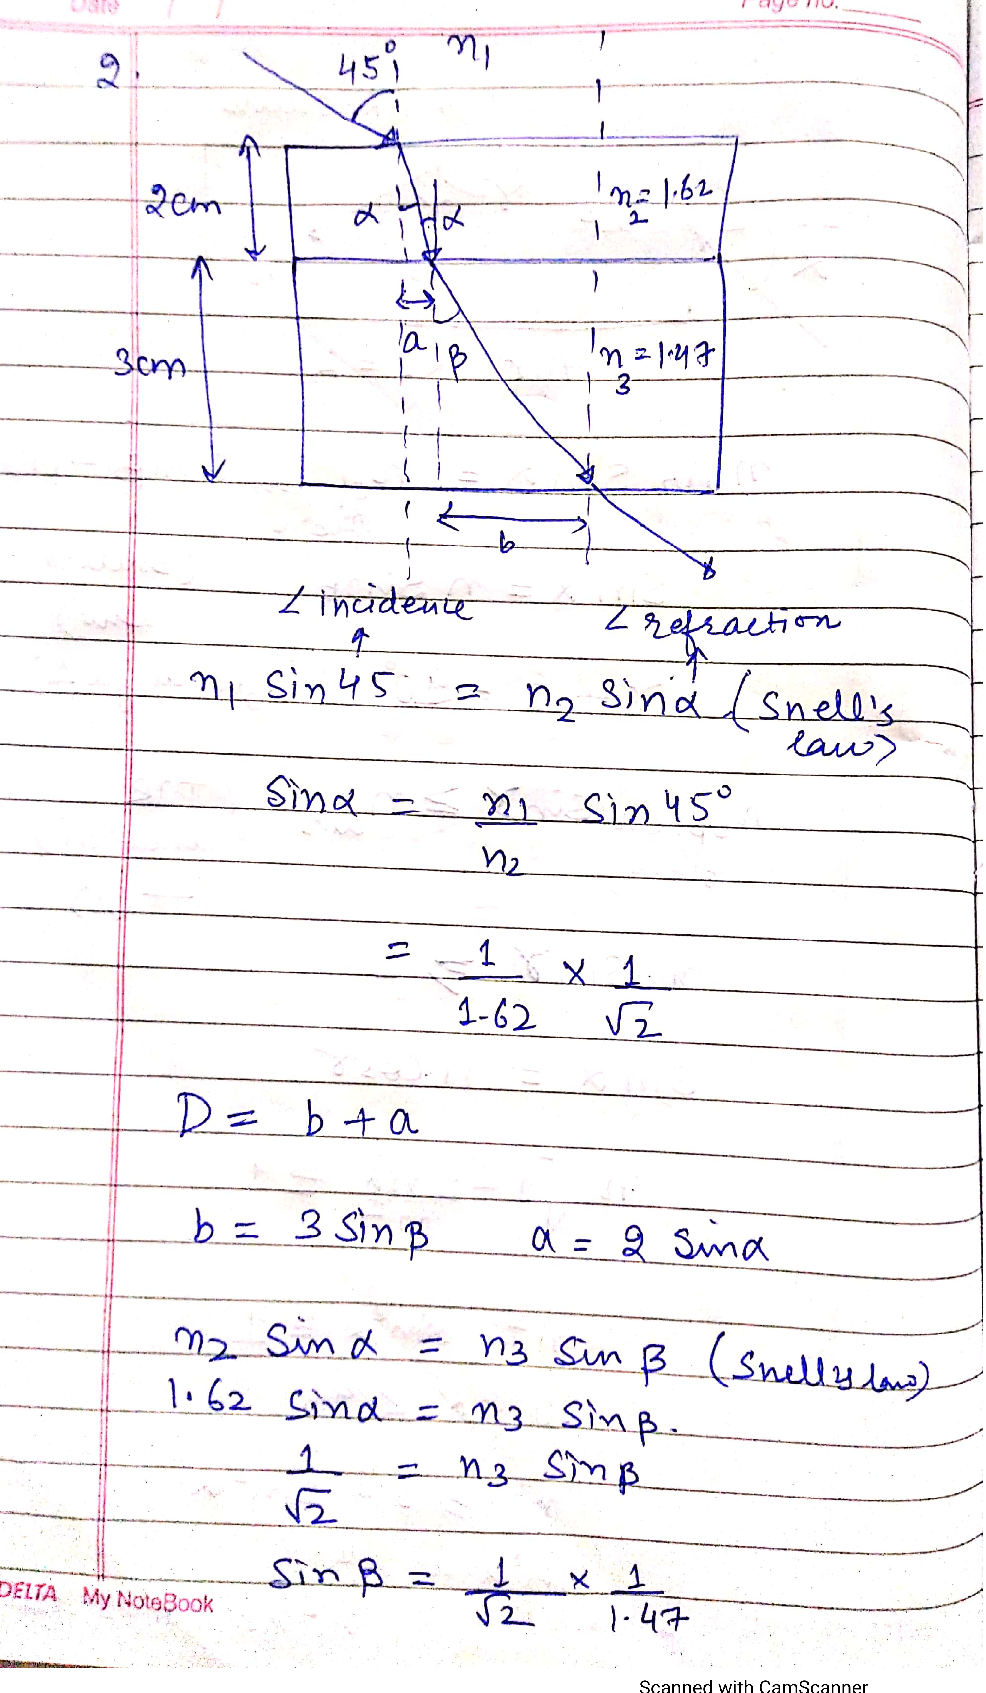 Date
Page no.
2.
45° n₁
2cm
α α
n₂ = 1.62
a
β
n₃ = 1.47
3cm
b
∠ incidence
∠ refraction
n₁ Sin 45 = n₂ Sinα (Snell's law)
Sinα = n₁/n₂ Sin 45°
= 1/1.62 × 1/√2
D = b + a
b = 3 Sinβ a = 2 Sinα
n₂ Sin α = n₃ Sin β (Snell's law)
1.62 Sinα = n₃ Sinβ.
1/√2 = n₃ Sinβ
Sin β = 1/√2 × 1/1.47
DELTA My NoteBook
Scanned with CamScanner